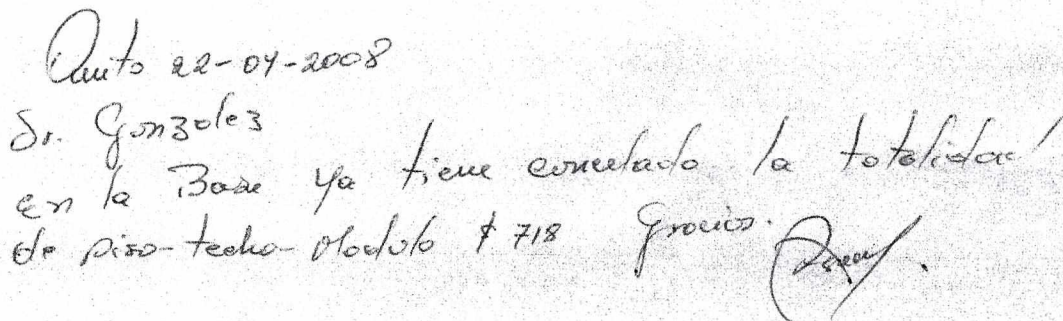 Quito 22-04-2008
Sr. Gonzolez
en la Base ya tiene cancelado la totalidad
de piso-techo-Modulo $ 718 Gracias.